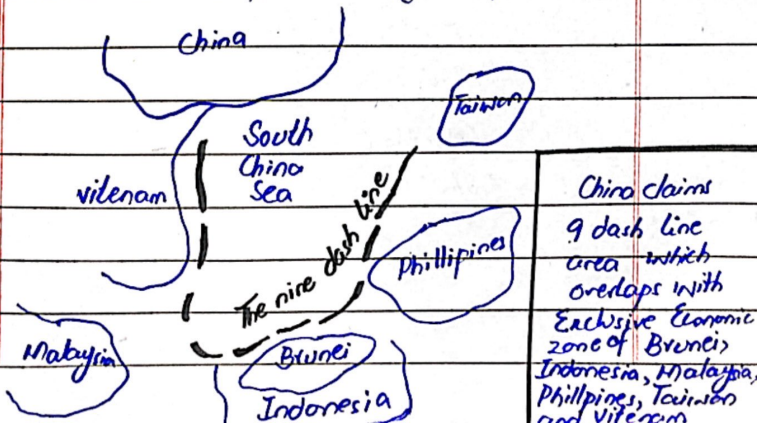 China
Taiwan
South
China
Sea
vitenam
The nine dash line
Phillipines
Malaysia
Brunei
Indonesia
China claims
9 dash line
area which
overlaps with
Exclusive Economic
zone of Brunei,
Indonesia, Malaysia,
Phillpines, Taiwan
and vitenam